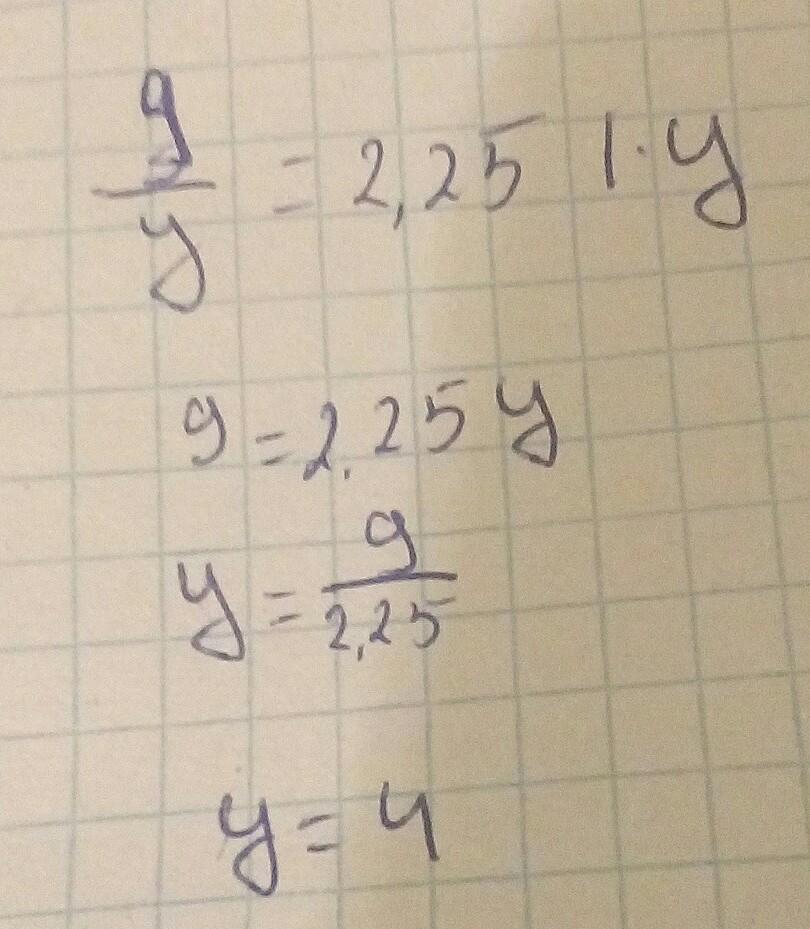 9/y = 2,25 | · y
9 = 2,25 y
y = 9/2,25
y = 4